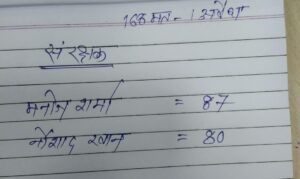 168 मत - 1 अवैध
संरक्षक
मनोज शर्मा = 87
नौशाद खान = 80